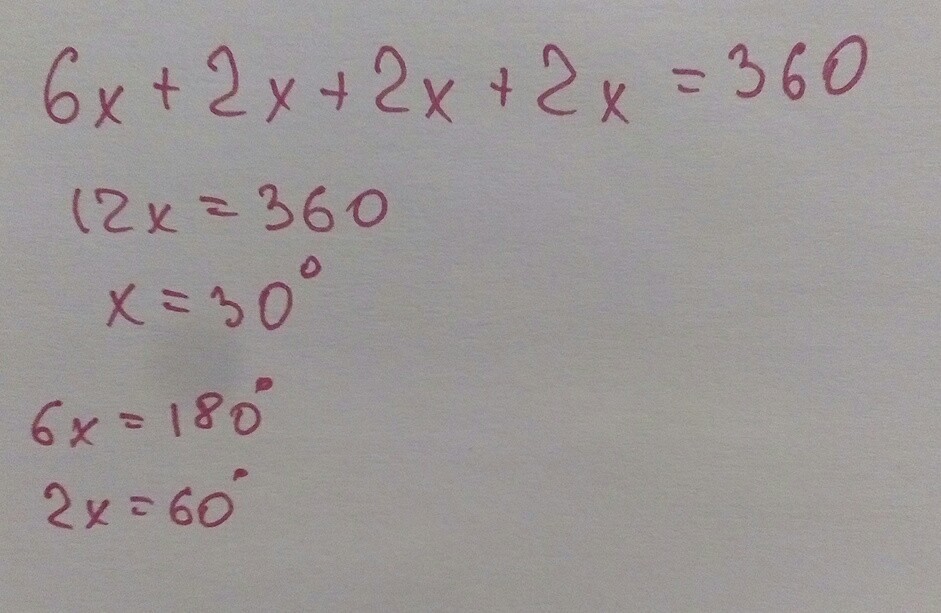 6x + 2x + 2x + 2x = 360
12x = 360
x = 30°
6x = 180°
2x = 60°